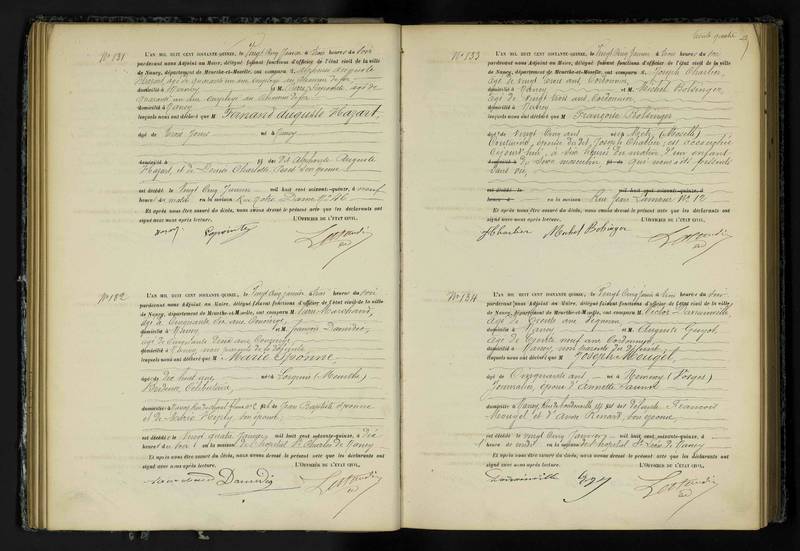 N° 131
L'AN MIL HUIT CENT SOIXANTE-QUINZE, le Vingt Cinq Janvier à Trois heures du Soir
pardevant nous Adjoint au Maire, délégué faisant fonctions d'officier de l'état civil de la ville
de Nancy, département de Meurthe-et-Moselle, ont comparu M. Alphonse Auguste
Hazart, âgé de quarante un ans employé au chemin de fer
domicilié à Nancy et M Pierre âgé de
quarante un ans employé au chemin de fer
domicilié à Nancy
lesquels nous ont déclaré que M Fernand Auguste Hazart,
âgé de trois jours né à Nancy
domicilié à fils de Dit Alphonse Auguste
Hazart, et de Louise Charlotte
est décédé le Vingt Cinq Janvier mil huit cent soixante-quinze, à neuf
heures du matin en la maison Rue Notre Dame N° 46
Et après nous être assuré du décès, nous avons dressé le présent acte que les déclarants ont
signé avec nous après lecture. L'OFFICIER DE L'ÉTAT CIVIL,
N° 132
L'AN MIL HUIT CENT SOIXANTE-QUINZE, le Vingt Cinq Janvier à trois heures du Soir
pardevant nous Adjoint au Maire, délégué faisant fonctions d'officier de l'état civil de la ville
de Nancy, département de Meurthe-et-Moselle, ont comparu M. Jean Marchand,
âgé de Cinquante Six ans Concierge
domicilié à Nancy et M. François Dameidin
âgé de Cinquante Deux ans
domicilié à Nancy non parents de la défunte
lesquels nous ont déclaré que M Marie Yvonne
âgée de Dix huit ans née à Lorquin (Meurthe)
Célibataire,
domiciliée à Nancy fille de Jean Baptiste Yvonne
et de Marie son épouse
est décédée le Vingt quatre Janvier mil huit cent soixante-quinze, à Dix
heures du Soir en la maison de l'hôpital St Charles de Nancy
Et après nous être assuré du décès, nous avons dressé le présent acte que les déclarants ont
signé avec nous après lecture. L'OFFICIER DE L'ÉTAT CIVIL,
N° 133
L'AN MIL HUIT CENT SOIXANTE-QUINZE, le Vingt Cinq Janvier à trois heures du Soir
pardevant nous Adjoint au Maire, délégué faisant fonctions d'officier de l'état civil de la ville
de Nancy, département de Meurthe-et-Moselle, ont comparu M. Joseph Charlier,
âgé de vingt trois ans Cordonnier,
domicilié à Nancy et M Michel Bolsinger
âgé de vingt trois ans Cordonnier,
domicilié à Nancy
lesquels nous ont déclaré que M Françoise Bolsinger
âgée de vingt Cinq ans née à Metz (Moselle)
Couturière, épouse du dit, Joseph Charlier, est accouchée
aujourd'hui, à six heures du matin d'un enfant
du Sexe masculin, qui nous a été présenté
Sans vie,
est décédé le mil huit cent soixante-quinze, à
heures d en la maison Rue Jean Lamour N° 12
Et après nous être assuré du décès, nous avons dressé le présent acte que les déclarants ont
signé avec nous après lecture. L'OFFICIER DE L'ÉTAT CIVIL,
JCharlier Michel Bolsinger
N° 134
L'AN MIL HUIT CENT SOIXANTE-QUINZE, le Vingt Cinq Janvier à trois heures du Soir
pardevant nous Adjoint au Maire, délégué faisant fonctions d'officier de l'état civil de la ville
de Nancy, département de Meurthe-et-Moselle, ont comparu M. Victor
âgé de trente ans
domicilié à Nancy et M. Auguste
âgé de trente neuf ans Cordonnier
domicilié à Nancy, non parents du défunt
lesquels nous ont déclaré que M Joseph Mougel,
âgé de Cinquante ans né à (Vosges)
Journalier, époux d'Annette
domicilié à Nancy, fils des défunts, François
Mougel et d'Anne son épouse
est décédé le vingt Cinq Janvier mil huit cent soixante-quinze, à
heure de en la maison de l'hôpital St de Nancy
Et après nous être assuré du décès, nous avons dressé le présent acte que les déclarants ont
signé avec nous après lecture. L'OFFICIER DE L'ÉTAT CIVIL,